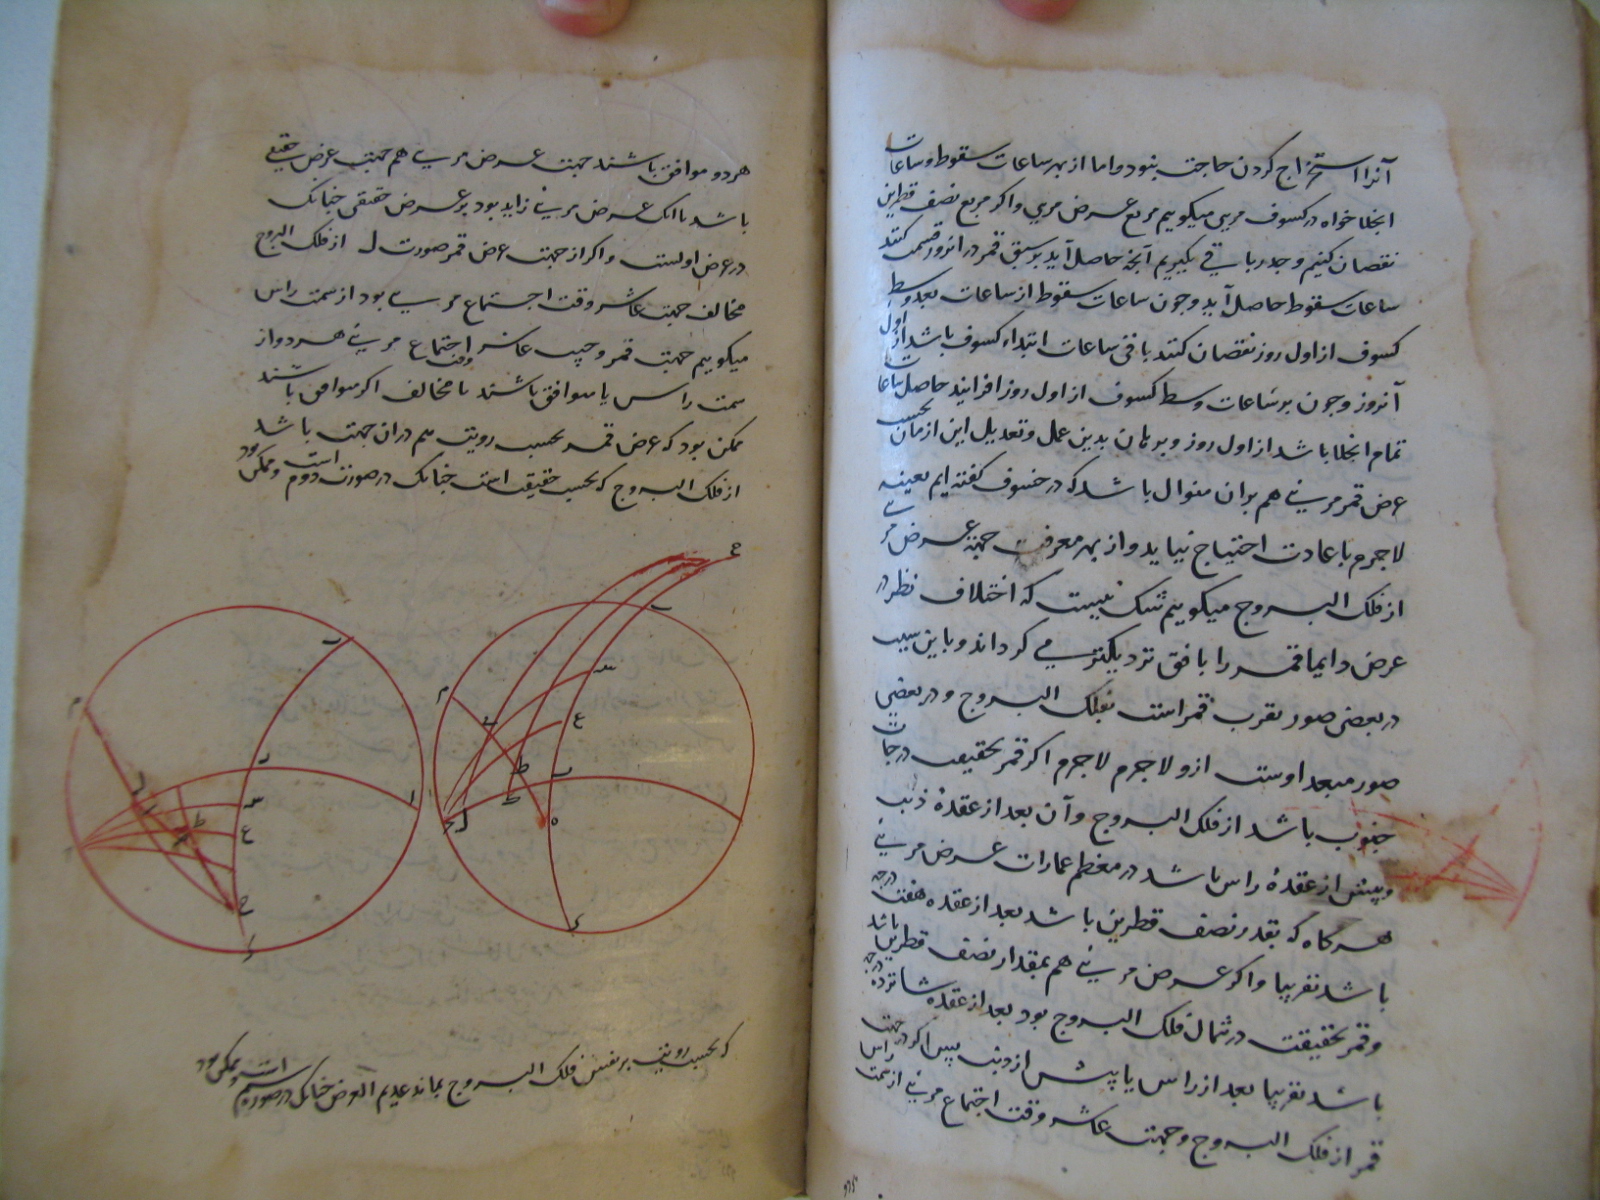 آنرا استخراج کردن حاجت بنود واما از بهر ساعات سقوط وساعات
انجلا خواه در کسوف مریی میکوییم مربع عرض مریی واکر مربع نصف قطرین
نقصان کنیم وجذر باقی بکیریم آنجه حاصل آید بر سبق قمر در انروز قسمت کنند
ساعات سقوط حاصل آید وجون ساعات سقوط از ساعات بعد وسط
کسوف از اول روز نقصان کنند باقی ساعات ابتداء کسوف باشد از اول
آنروز وجون بر ساعات وسط کسوف از اول روز افزایند حاصل ساعات
تمام انجلا باشد از اول روز وبرهان بدین عمل وتعدیل این ازمان بحسب
عرض قمر مریی هم بران منوال باشد که در خسوف کفته ایم بعینه
لاجرم باعادت احتیاج نیاید واز بهر معرفت جهة عرض مریی
از فلک البروج میکوییم شک نیست که اختلاف نظر در
عرض دایما قمر را بافق نزدیکتر می کرداند وباین سبب
در بعضی صور مقرب قمر است بفلک البروج ودر بعضی
صور مبعد اوست ازو لاجرم لاجرم اکر قمر بحقیقت در جانب
جنوب باشد از فلک البروج وآن بعد از عقدهٔ ذنب
وپیش از عقدهٔ راس باشد در معظم عمارات عرض مریی
هرکاه که بقدر نصف قطرین باشد بعد از عقده هفت درجه
باشد تقریبا واکر عرض مریی هم بمقدار نصف قطرین باشد
وقمر بحقیقت در شمال فلک البروج بود بعد از عقده شانزده درجه
باشد تقریبا بعد از راس یا پیش از ذنب پس اکر جهت
قمر از فلک البروج وجهت عاشر وقت اجتماع مریی از سمت راس
هردو موافق باشند جهت عرض مریی هم جهت عرض حقیقی
باشد با انک عرض مریی زاید بود بر عرض حقیقی جنانک
در عرض اولست واکر از جهت عرض قمر صورت ل از فلک البروج
مخالف جهت عاشر وقت اجتماع مریی بود از سمت راس
میکوییم جهت قمر وجهت عاشر وقت اجتماع مریی هردو از
سمت راس یا موافق باشند یا مخالف اکر موافق باشند
ممکن بود که عرض قمر بحسب رویت هم دران جهت باشد
از فلک البروج که بحسب حقیقت است جنانک در صورت دوم است وممکن بود
که بحسب رویت بر نفس فلک البروج بماند عدیم العرض جنانک در صورة سیم است وممکن بود